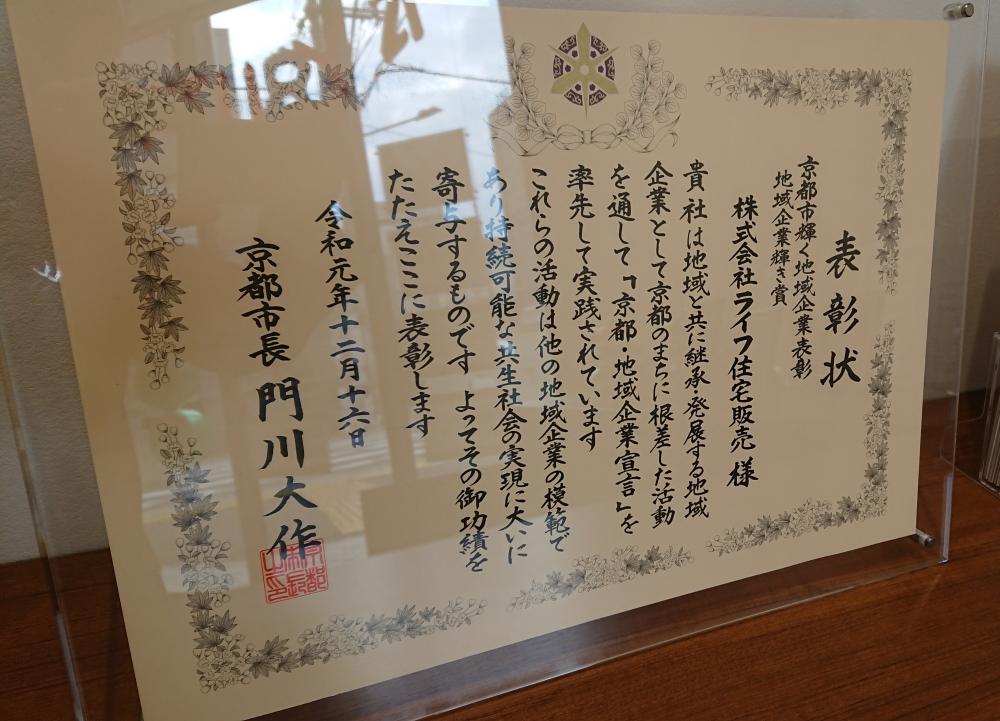 表彰状
京都市輝く地域企業表彰
地域企業輝き賞
株式会社ライフ住宅販売 様
貴社は地域と共に継承・発展する地域
企業として京都のまちに根差した活動
を通して「京都・地域企業宣言」を
率先して実践されています
これらの活動は他の地域企業の模範で
あり持続可能な共生社会の実現に大いに
寄与するものです よってその御功績を
たたえここに表彰します
令和元年十二月十六日
京都市長 門川大作
京都
市長
之印